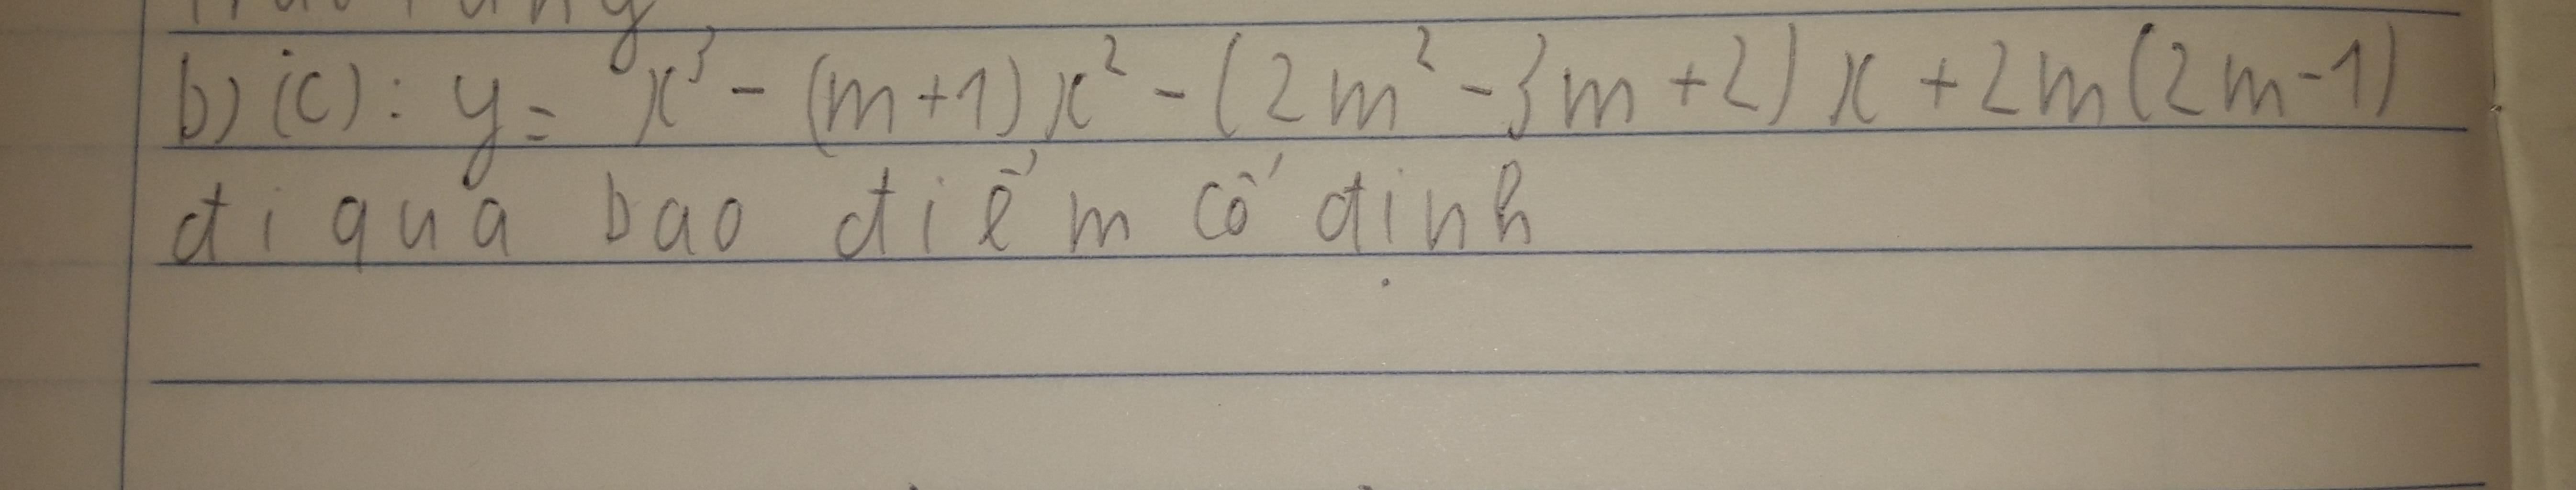 b) (c): y = x³ - (m+1)x² - (2m² - 3m + 2)x + 2m(2m-1)
đi qua bao điểm cố định